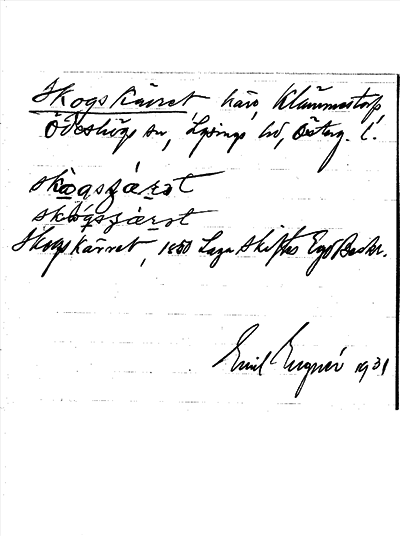 Skogskärret kärr, Klämmestorp,
Ödeshögs sn, Lysings hd, Österg. l.
skògsʒárət
skógsʒàrət
Skogskärret, 1850 Laga Skiftes Ego Beskr.
Emil 1931